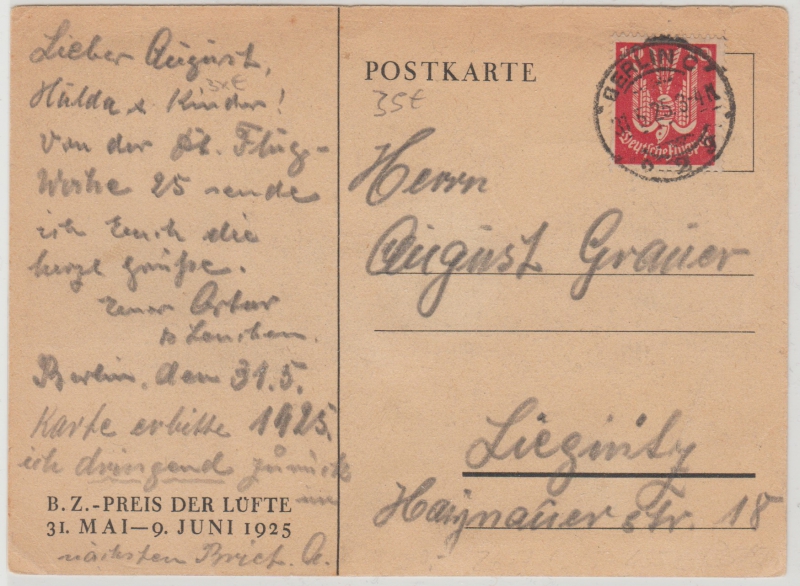 Lieber August,
3x€
Hulda & Kinder!
Von der dt. Flug-
Woche 25 sende
ich Euch die
herzl Grüße.
Euer Artur
& Lenchen.
Berlin, den 31.5.
1925.
Karte erbitte
ich dringend zurück
im
B.Z.-PREIS DER LÜFTE
31. MAI—9. JUNI 1925
nächsten Brief. A.
POSTKARTE
35€
BERLIN C
Deutsche
2
Herrn
August Grauer
Liegnitz
Haynauer str. 18